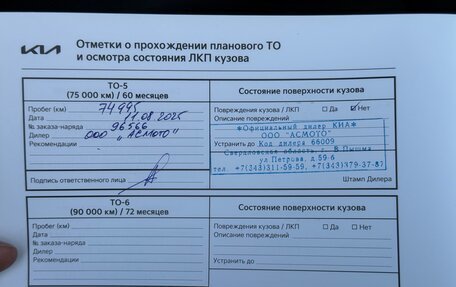 KIA
Отметки о прохождении планового ТО
и осмотра состояния ЛКП кузова
ТО-5
(75 000 км) / 60 месяцев
Состояние поверхности кузова
Пробег (км) 74995
Дата 11.08.2025
№ заказа-наряда 96566
Дилер ООО "АСМОТО"
Рекомендации
Подпись ответственного лица
Повреждения кузова / ЛКП ☐ Да ☑ Нет
Описание повреждений
*Официальный дилер КИА*
ООО "АСМОТО"
Устранить до Код дилера 66009
Свердловская область, г. В.Пышма
ул.Петрова, д.59-б
тел. +7(343)311-59-59, +7(343)379-37-87
Штамп Дилера
ТО-6
(90 000 км) / 72 месяцев
Состояние поверхности кузова
Пробег (км)
Дата
№ заказа-наряда
Дилер
Рекомендации
Повреждения кузова / ЛКП ☐ Да ☐ Нет
Описание повреждений
Устранить до